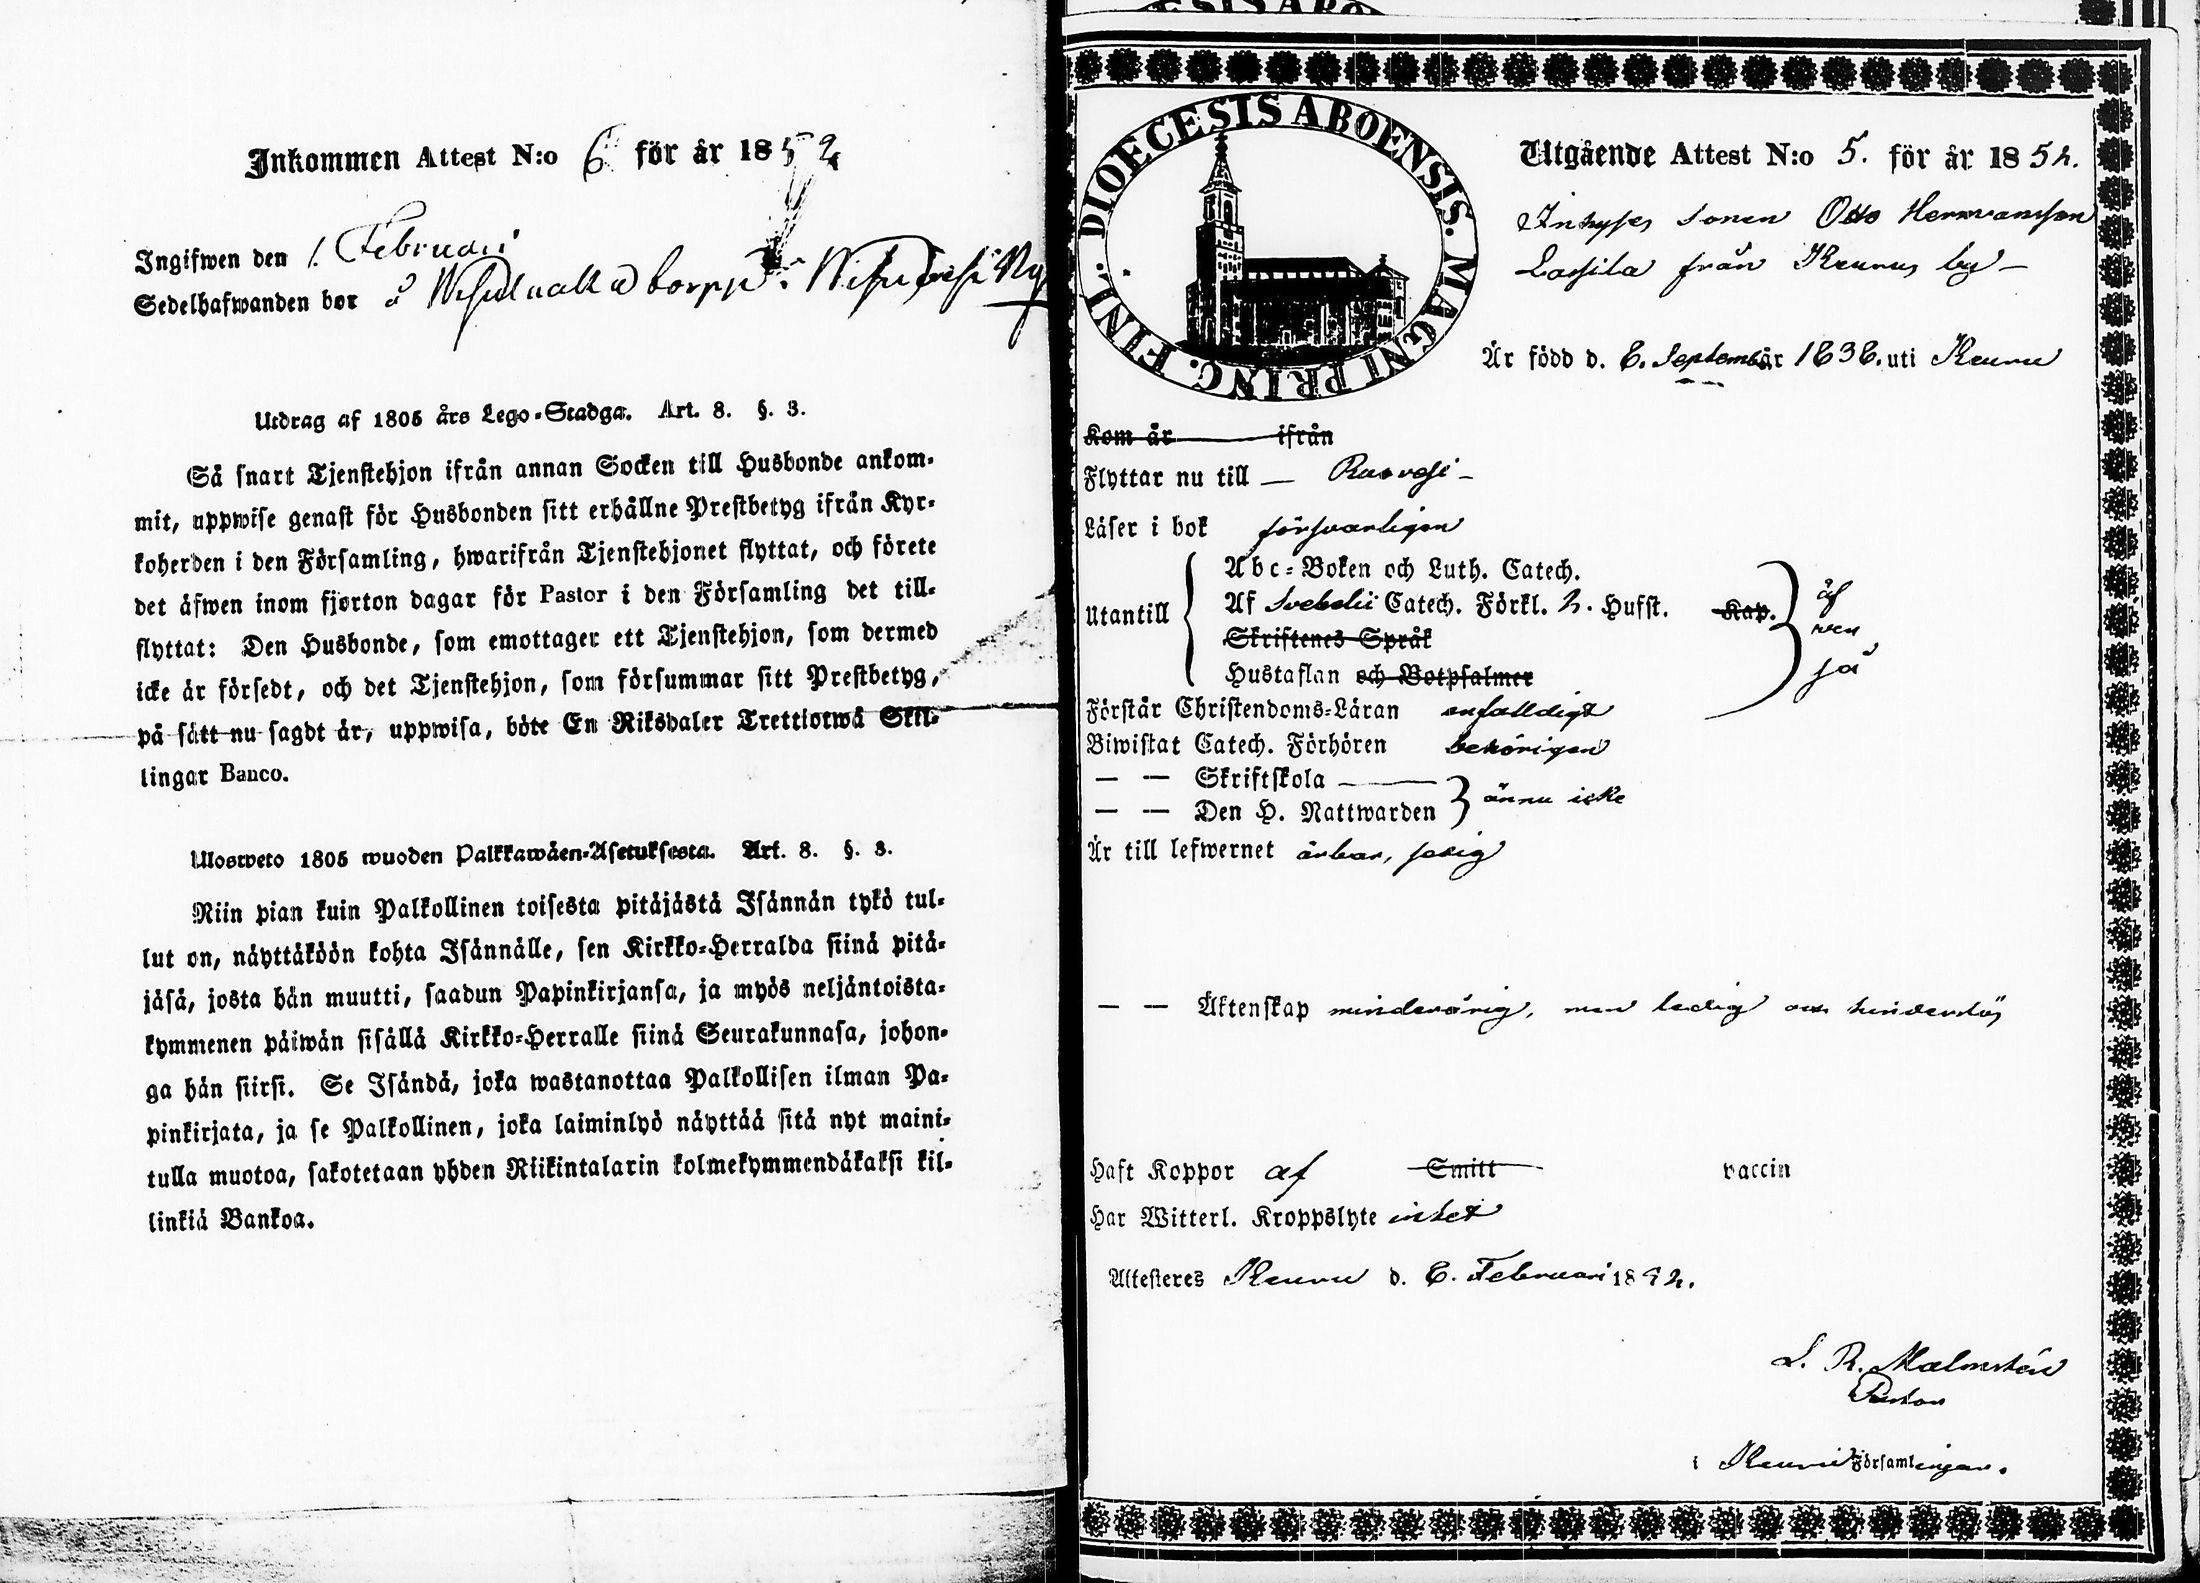 Inkommen Attest N:o 6 för år 1852
Ingifwen den 1. Februari
Sedelhafwanden bor å torp
Utdrag af 1805 års Lego-Stadga. Art. 8. §. 3.
Så snart Tjenstehjon ifrån annan Socken till Husbonde ankom-
mit, uppwise genast för Husbonden sitt erhållne Prestbetyg ifrån Kyr-
koherden i den Församling, hwarifrån Tjenstehjonet flyttat, och förete
det äfwen inom fjorton dagar för Pastor i den Församling det till-
flyttat: Den Husbonde, som emottager ett Tjenstehjon, som dermed
icke är försedt, och det Tjenstehjon, som försummar sitt Prestbetyg,
på sätt nu sagdt är, uppwisa, böte En Riksdaler Trettiotwå Skil-
lingar Banco.
Ulosweto 1805 wuoden Palkkawäen-Asetuksesta. Art. 8. §. 3.
Niin pian kuin Palkollinen toisesta pitäjästä Isännän tykö tul-
lut on, näyttäköön kohta Isännälle, sen Kirkko-Herralda siinä pitä-
jäsä, josta hän muutti, saadun Papinkirjansa, ja myös neljäntoista-
kymmenen päiwän sisällä Kirkko-Herralle siinä Seurakunnasa, johon-
ga hän siirsi. Se Isändä, joka wastanottaa Palkollisen ilman Pa-
pinkirjata, ja se Palkollinen, joka laiminlyö näyttää sitä nyt maini-
tulla muotoa, sakotetaan yhden Riikintalarin kolmekymmendäkaksi kil-
linkiä Bankoa.
DIOECESIS ABOENSIS. MAGNI PRINC. FINL.
Utgående Attest N:o 5. för år 1852.
Inhyses sonen Otto Hermansson
Lassila från Keuru by —
Är född d. 8. September 1838. uti Keuru
Kom år ifrån
Flyttar nu till — Ruovesi —
Läser i bok försvarligen
Utantill
Abc-Boken och Luth. Catech.
Af Svebelii Catech. Förkl. 2. Hufst. Kap.
Skriftenes Språk
Hustaflan och Botpsalmer
äf
ven
så
Förstår Christendoms-Läran enfaldigt
Biwistat Catech. Förhören behörigen
— — Skriftskola
— — Den H. Nattwarden
ännu icke
Är till lefwernet ärbar, sedig
— — Äktenskap minderårig, men ledig och hinderslös
Haft Koppor af Smitt vaccin
Har Witterl. Kroppslyte intet
Attesteres Keuru d. 8. Februari 1852.
L. R. Malmstén
Pastor
i Keuru Församlingar.